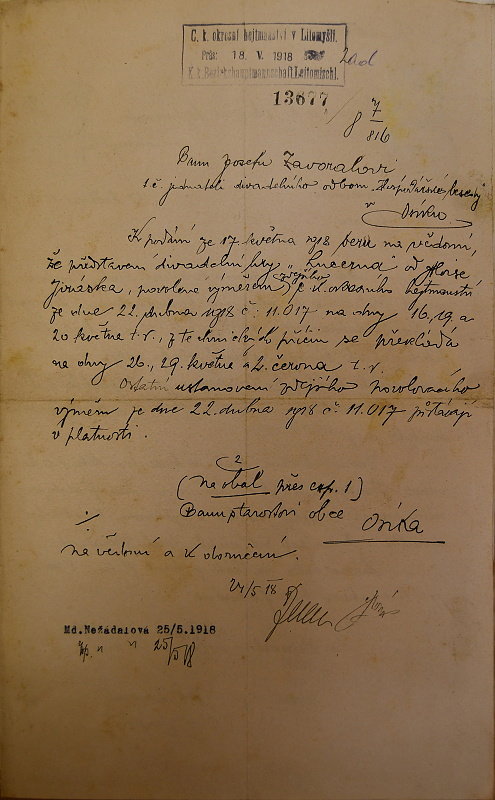 C. k. okresní hejtmanství v Litomyšli.
Präs: 18. V. 1918
K. k. Bezirkshauptmannschaft Leitomischl.
13677
8 7/816
Panu Josefu Zavoralovi
t. č. jednateli divadelního odboru „Hospodářské besedy"
v Osíku.
K podání ze 17. května 1918 beru na vědomí,
že představení divadelní hry „Lucerna" od Aloise
Jiráska, povolené výměrem zdejšího c. k. okresního hejtmanství
ze dne 22. dubna 1918 č. 11.017 na dny 16, 19 a
20 května t. r., z technických příčin se překládá
na dny 26., 29. května a 2. června t. r.
Ostatní ustanovení zdejšího povolovacího
výměru ze dne 22. dubna 1918 č. 11.017 zůstávají
v platnosti.
2
(na obal přes exp. 1)
Panu starostovi obce Osíka
na vědomí a k doručení.
24/5 18
Md. Nežádalová 25/5.1918
" " 25/5 18